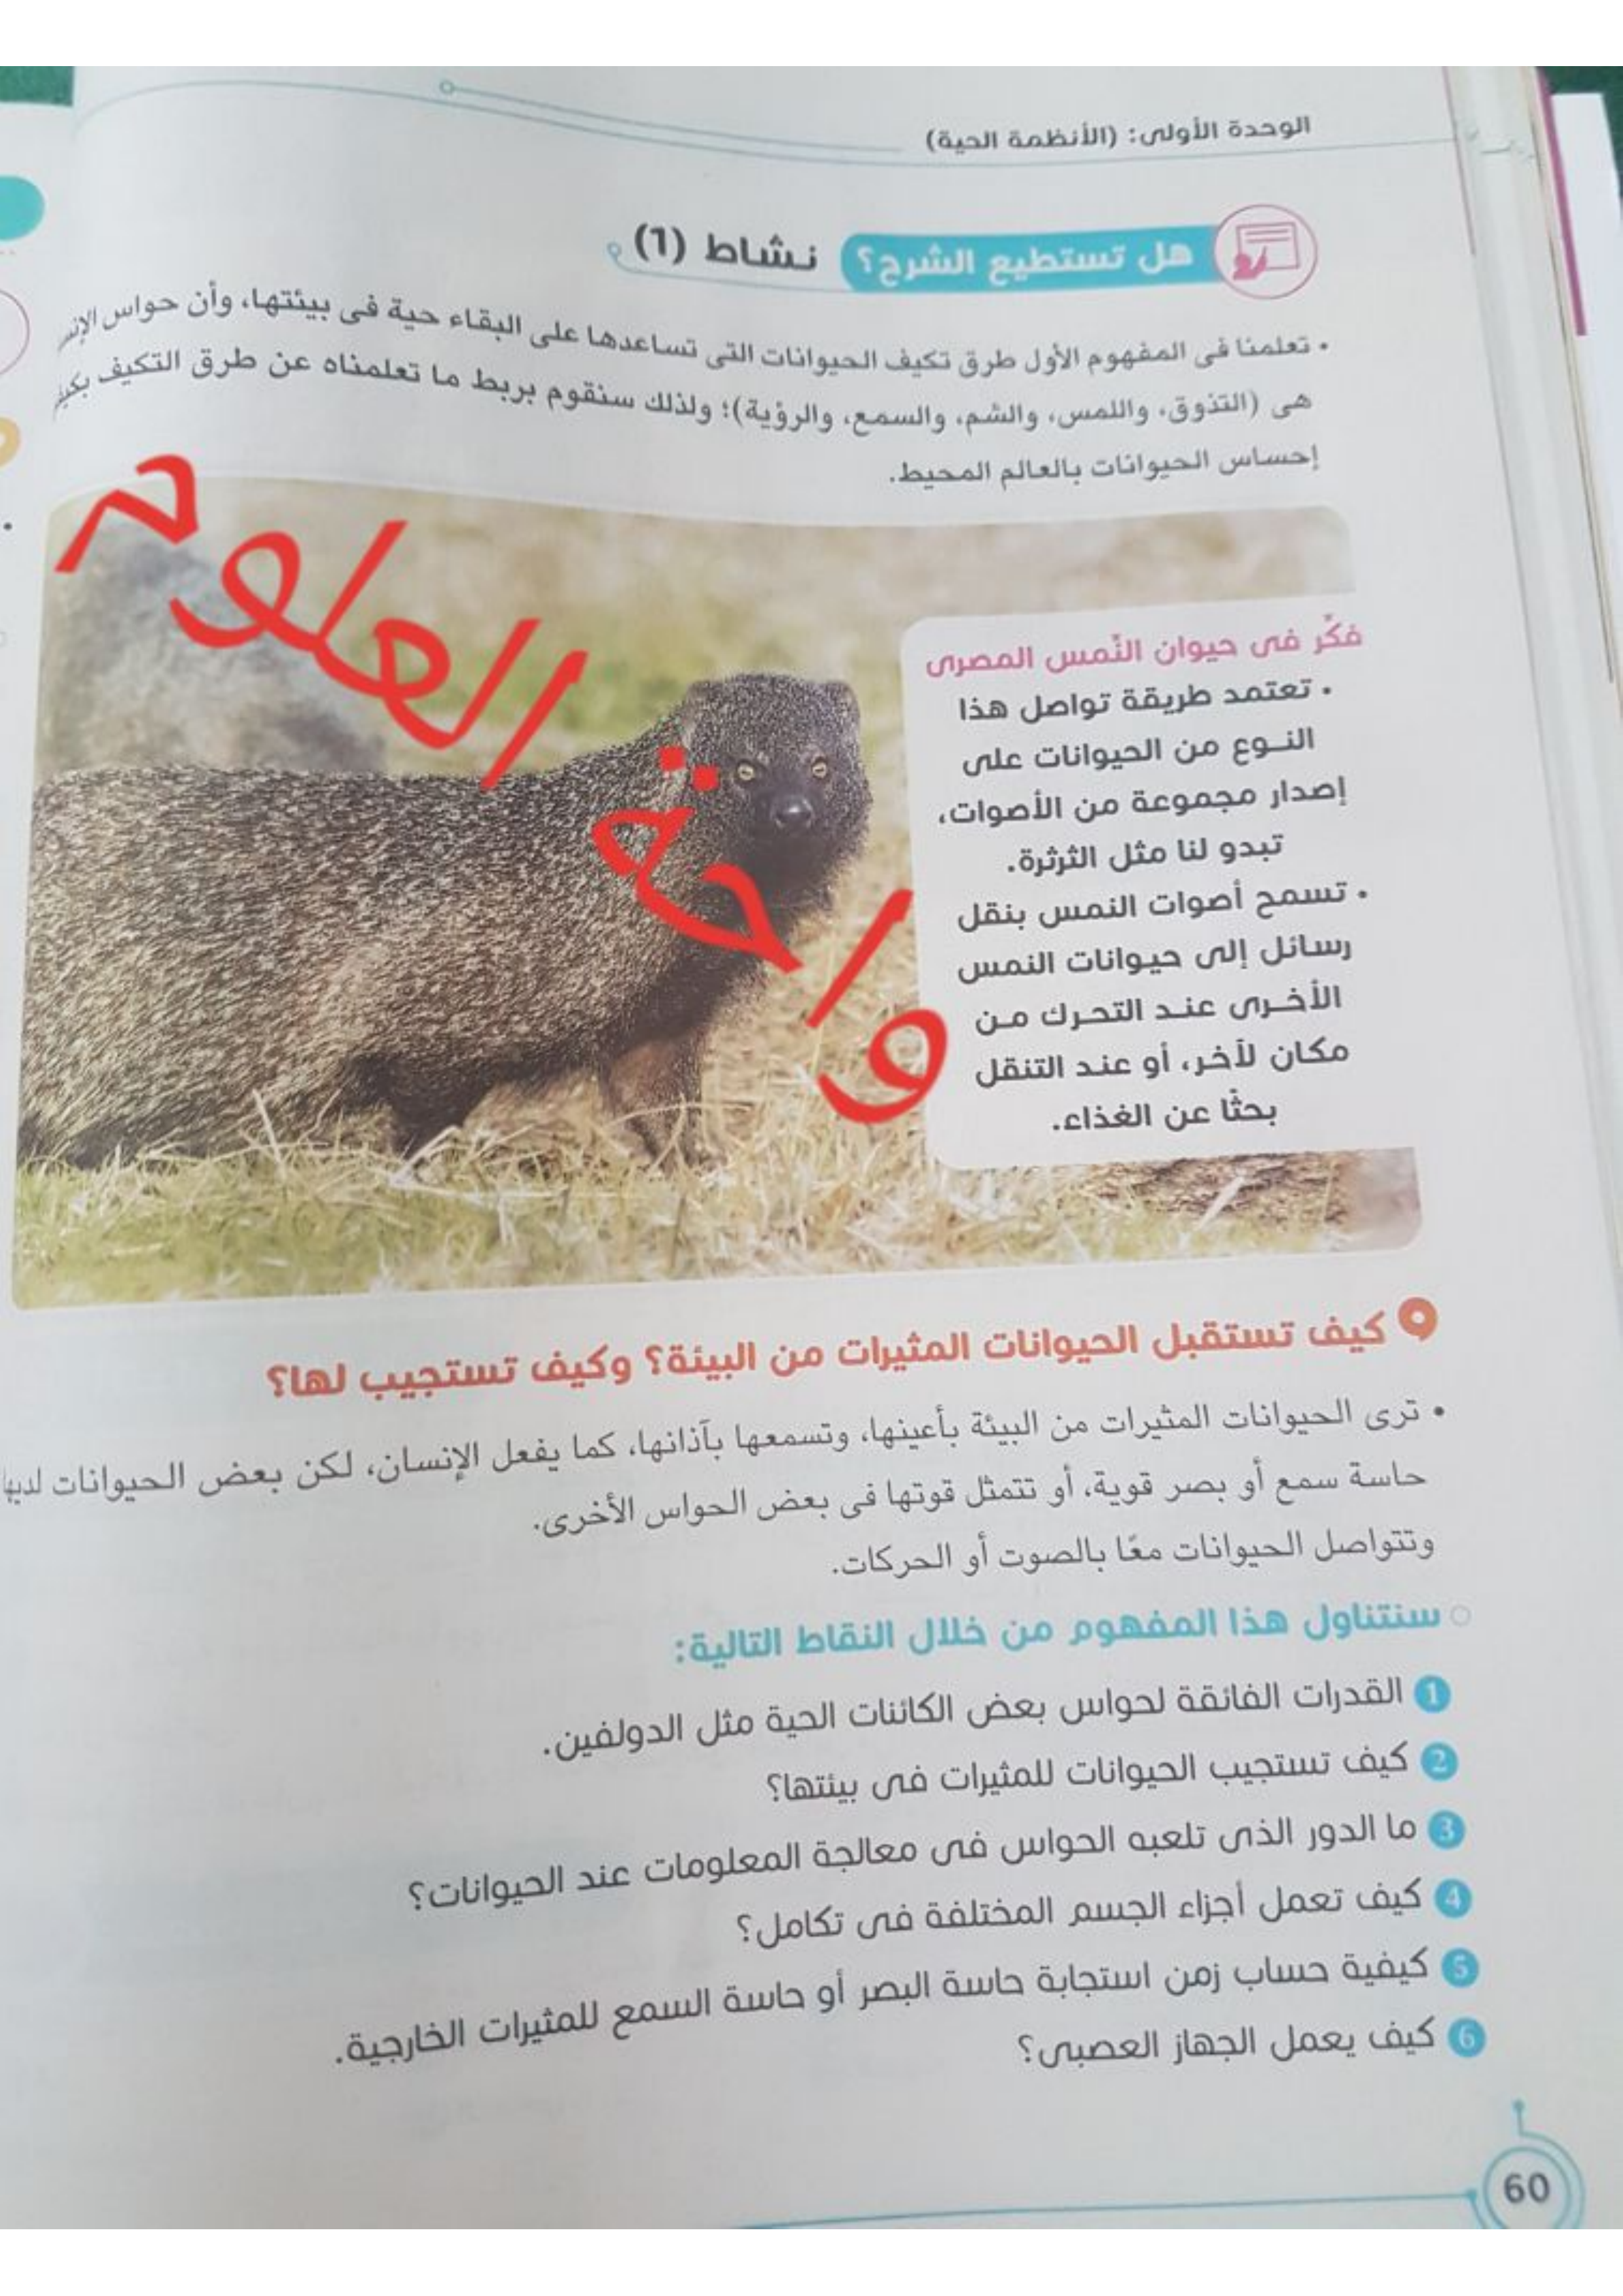 الوحدة الأولى: (الأنظمة الحية)
هل تستطيع الشرح؟ نشاط (1)
• تعلمنا فى المفهوم الأول طرق تكيف الحيوانات التى تساعدها على البقاء حية فى بيئتها، وأن حواس
هى (التذوق، واللمس، والشم، والسمع، والرؤية)؛ ولذلك سنقوم بربط ما تعلمناه عن طرق التكيف
إحساس الحيوانات بالعالم المحيط.
واحة العلوم
فكِّر فى حيوان النِّمس المصرى
• تعتمد طريقة تواصل هذا
النوع من الحيوانات على
إصدار مجموعة من الأصوات،
تبدو لنا مثل الثرثرة.
• تسمح أصوات النمس بنقل
رسائل إلى حيوانات النمس
الأخرى عند التحرك من
مكان لآخر، أو عند التنقل
بحثًا عن الغذاء.
كيف تستقبل الحيوانات المثيرات من البيئة؟ وكيف تستجيب لها؟
• ترى الحيوانات المثيرات من البيئة بأعينها، وتسمعها بآذانها، كما يفعل الإنسان، لكن بعض الحيوانات لديها
حاسة سمع أو بصر قوية، أو تتمثل قوتها فى بعض الحواس الأخرى.
وتتواصل الحيوانات معًا بالصوت أو الحركات.
سنتناول هذا المفهوم من خلال النقاط التالية:
1 القدرات الفائقة لحواس بعض الكائنات الحية مثل الدولفين.
2 كيف تستجيب الحيوانات للمثيرات فى بيئتها؟
3 ما الدور الذى تلعبه الحواس فى معالجة المعلومات عند الحيوانات؟
4 كيف تعمل أجزاء الجسم المختلفة فى تكامل؟
5 كيفية حساب زمن استجابة حاسة البصر أو حاسة السمع للمثيرات الخارجية.
6 كيف يعمل الجهاز العصبى؟
60